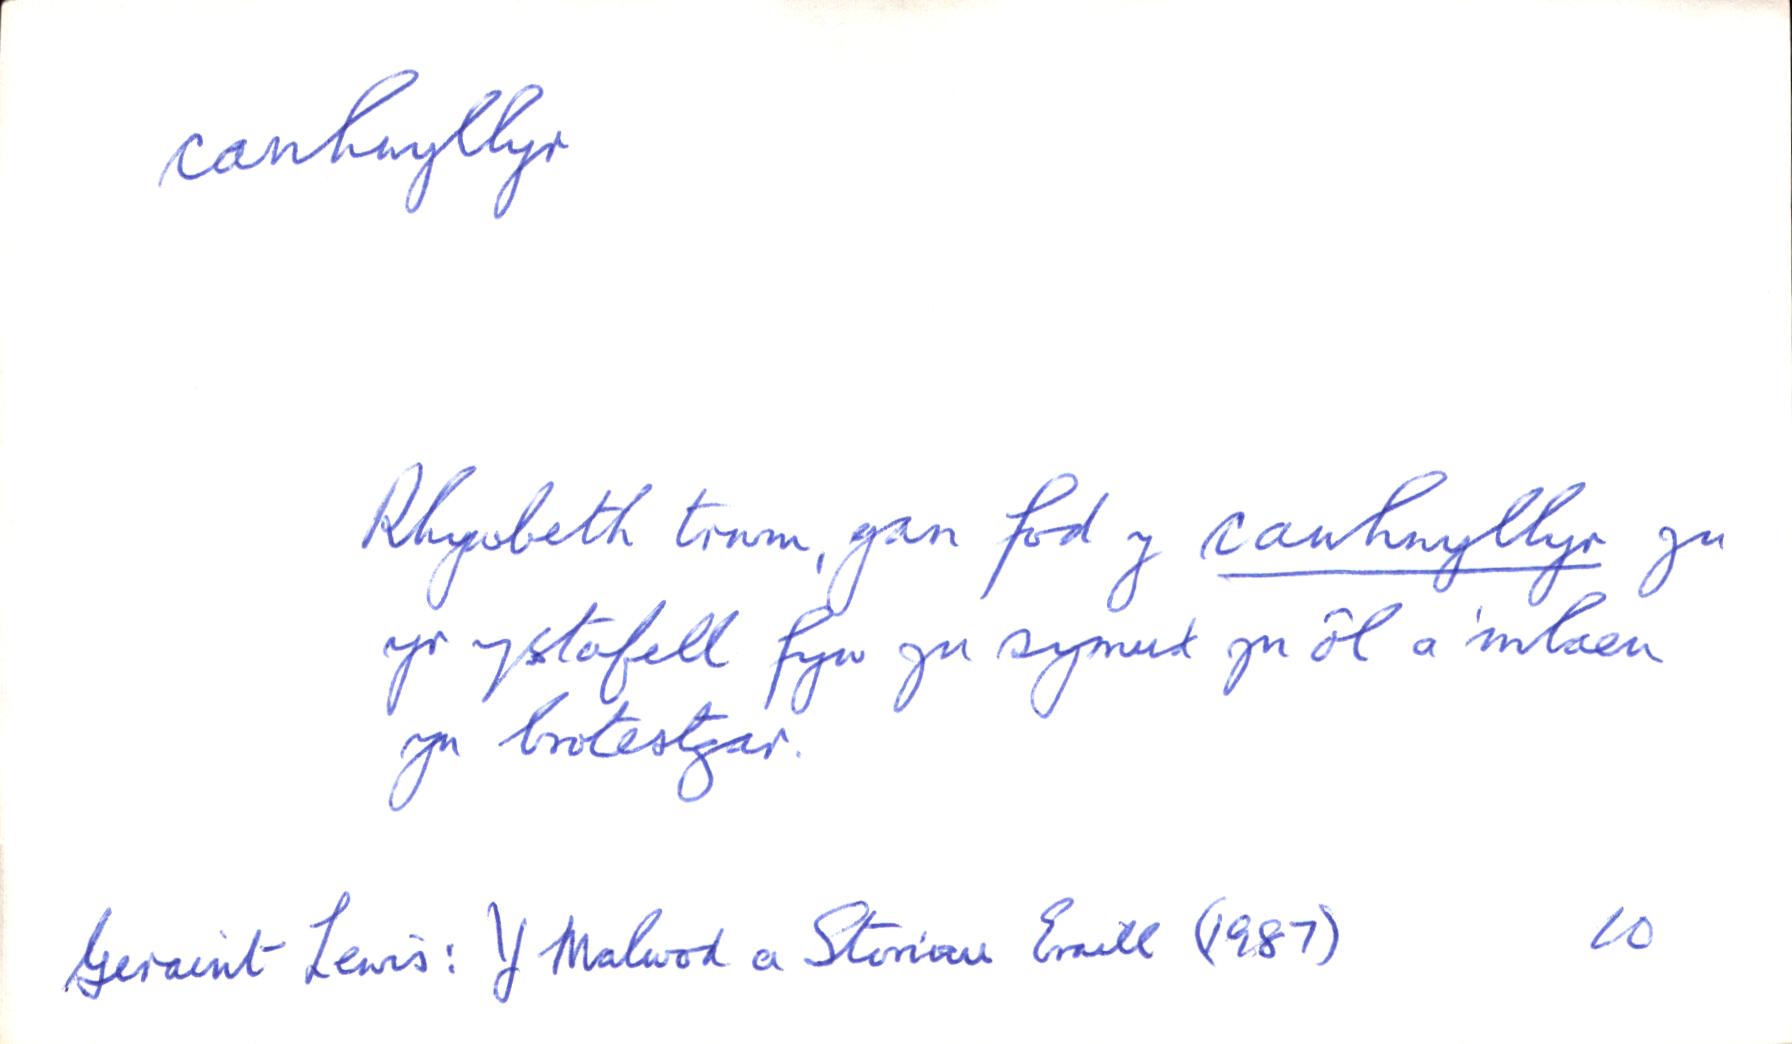 canhwyllyr
Rhywbeth trwm, gan fod y canhwyllyr yn
yr ystafell fyw yn symud yn ôl a 'mlaen
yn brotestgar.
Geraint Lewis: Y Malwod a Storïau Eraill (1987) 10